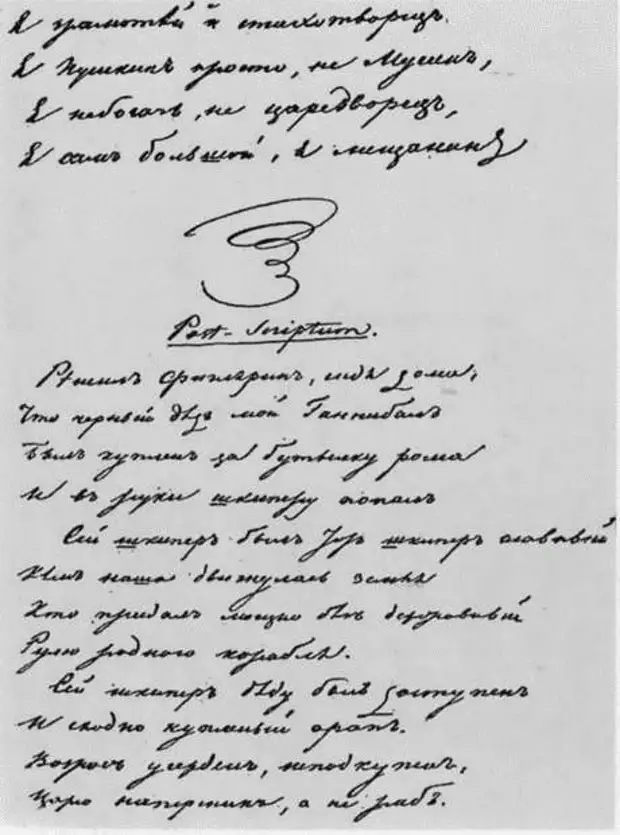 Я грамотѣй и стихотворецъ.
Я Пушкинъ просто, не Мусинъ,
Я не богачъ, не царедворецъ,
Я самъ большой, я мещанинъ
Post-Scriptum.
Рѣшилъ Фигляринъ, сидя дома,
Что черный дѣдъ мой Ганнибалъ
Былъ купленъ за бутылку рома
И въ руки шкиперу попалъ
Сей шкиперъ былъ тотъ шкиперъ славный
Кѣмъ наша двигнулась земля
Кто придалъ мощно бѣгъ державный
Рулю роднаго корабля.
Сей шкиперъ дѣду былъ доступенъ
И сходно купленный арапъ.
Возросъ усерденъ, неподкупенъ,
Царю наперсникъ, а не рабъ.